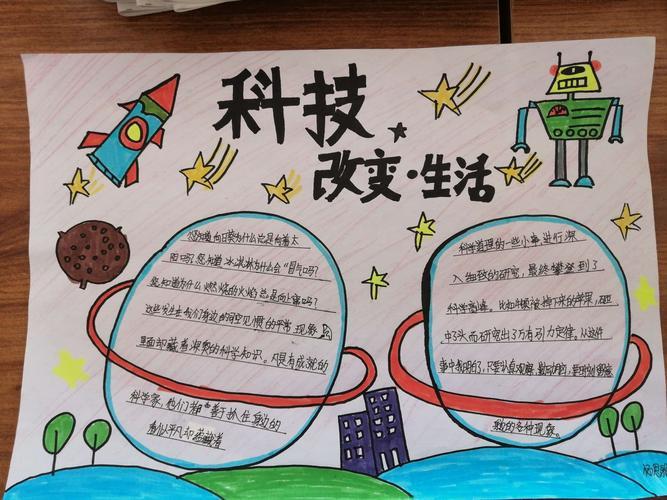 科技
改变·生活
您知道向日葵为什么总是向着太
阳吗?您知道冰淇淋为什么会“冒气吗?
您知道为什么燃烧的火焰总是向上蹿吗?
这些发生在我们身边的司空见惯的平常现象
里面却藏着深奥的科学知识。凡是有成就的
科学家,他们都善于抓住身边的
看似平凡却蕴藏着
科学道理的一些小事进行深
入细致的研究,最终攀登到了
科学高峰。比如牛顿被掉下来的苹果,砸
中了头而研究出了万有引力定律。从这件
事中表明的了,只要认真观察,勤于动脑,
身边的各种现象。